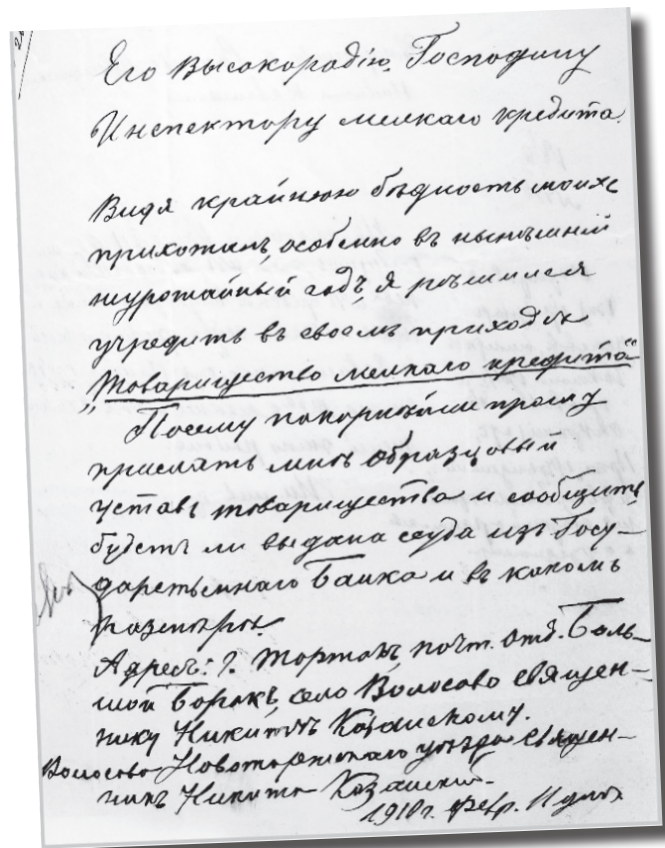 Его Высокородію Господину
Инспектору мелкаго кредита.
Видя крайнюю бѣдность моихъ
прихожанъ, особенно въ нынѣшній
неурожайный годъ, я рѣшился
учредить въ своемъ приходѣ
„Товарищество мелкаго кредита“
Посему покорнѣйше прошу
прислать мнѣ образцовый
уставъ товарищества и сообщить,
будетъ ли выдана ссуда изъ Госу-
дарственнаго Банка и въ какомъ
размѣрѣ.
Адресъ: г. Торжокъ почт. отд. Боль-
шой Борокъ, село Волосово священ-
нику Никитѣ Казанскому.
Волосово Новоторжскаго уѣзда священ-
никъ Никита Казанскій.
1910 г. Февр. 11 дня